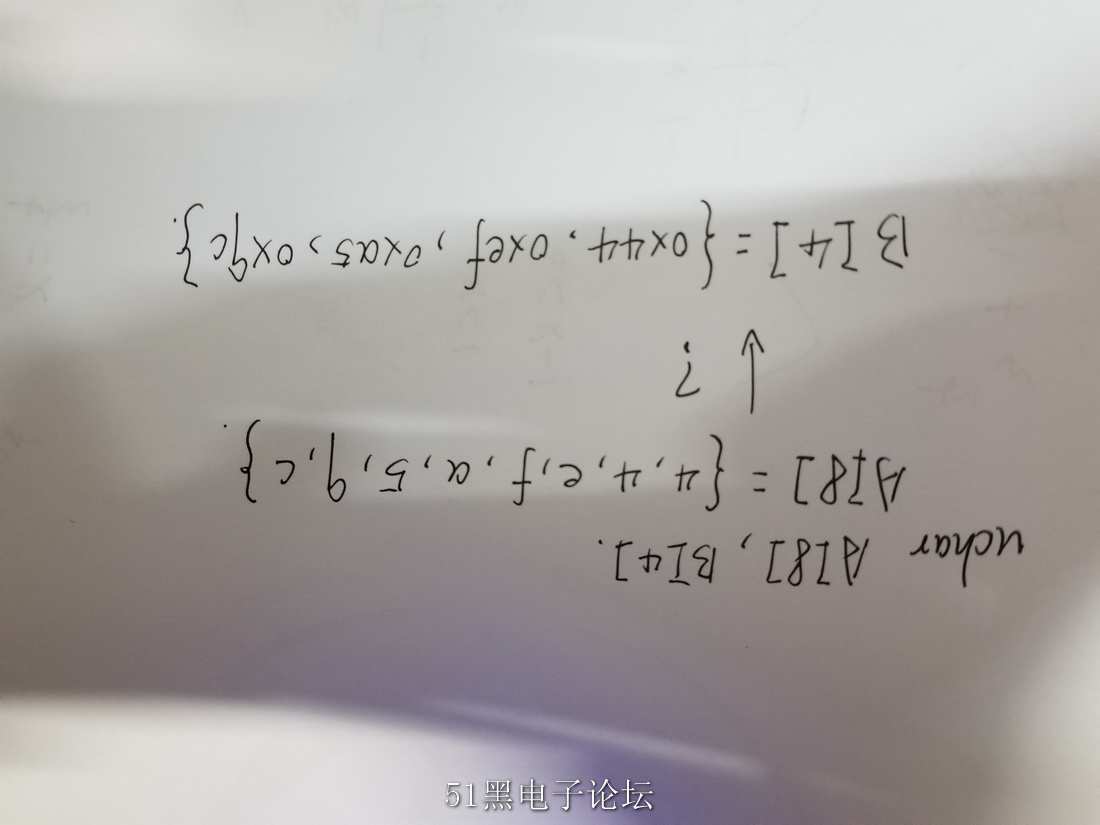 uchar A[8], B[4].
A[8] = {4,4,e,f,a,5,9,c}.
?
B[4] = {0x44, 0xef, 0xa5, 0x9c}.
51黑电子论坛